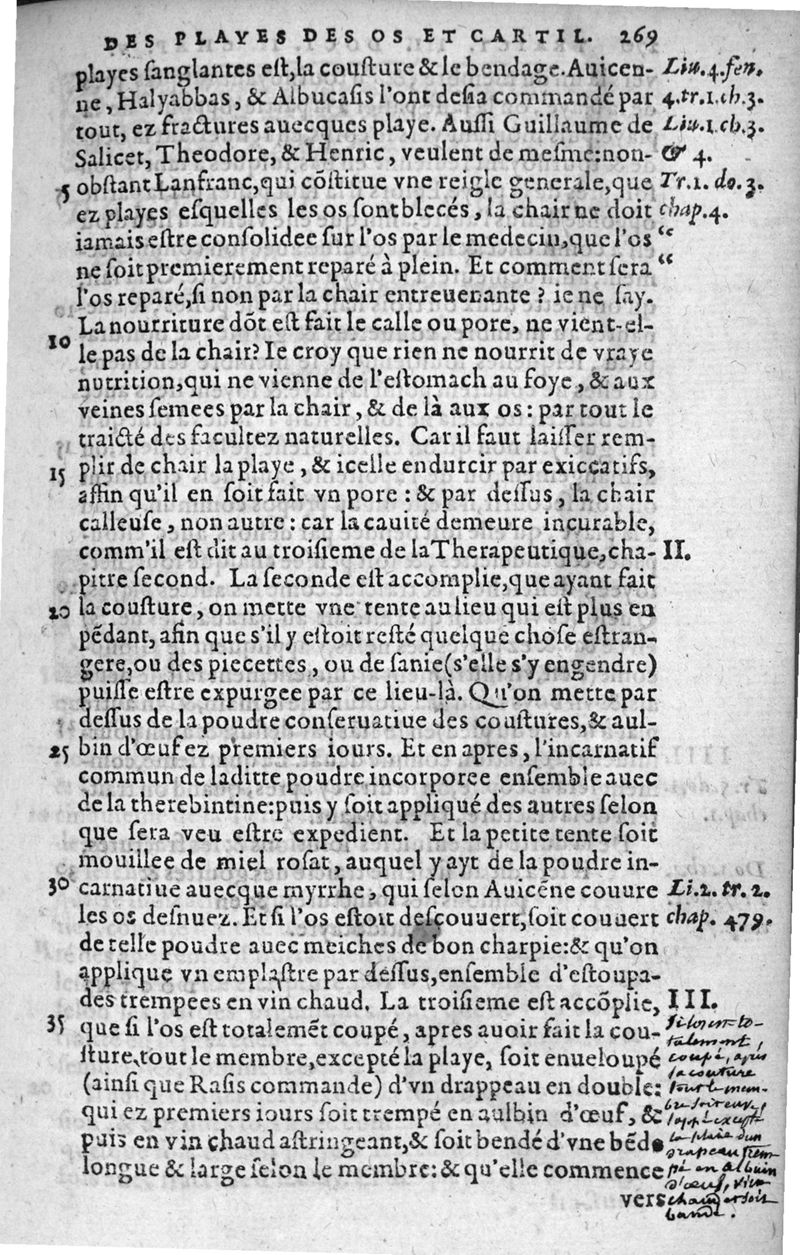 DES PLAYES DES OS ET CARTIL. 269
playes ſanglantes eſt, la couſture & le bendage. Auicen-
ne, Halyabbas, & Albucaſis l'ont deſia commandé par
tout, ez fractures auecques playe. Auſſi Guillaume de
Salicet, Theodore, & Henric, veulent de meſme: non-
5 obſtant Lanfranc, qui cõſtitue vne reigle generale, que
ez playes eſquelles les os ſont blecés, la chair ne doit
iamais eſtre conſolidee ſur l'os par le medecin, que l'os “
ne ſoit premierement reparé à plein. Et comment ſera “
l'os reparé, ſi non par la chair entreuenante ? ie ne ſay.
La nourriture dõt eſt fait le calle ou pore, ne vient-el-
10 le pas de la chair? Ie croy que rien ne nourrit de vraye
nutrition, qui ne vienne de l'eſtomach au foye, & aux
veines ſemees par la chair, & de là aux os : par tout le
traicté des facultez naturelles. Car il faut laiſſer rem-
15 plir de chair la playe, & icelle endurcir par exiccatifs,
affin qu'il en ſoit fait vn pore : & par deſſus, la chair
calleuſe, non autre : car la cauité demeure incurable,
comm'il eſt dit au troiſieme de la Therapeutique, cha-
pitre ſecond. La ſeconde eſt accomplie, que ayant fait
20 la couſture, on mette vne tente au lieu qui eſt plus en
pẽdant, afin que s'il y eſtoit reſté quelque choſe eſtran-
gere, ou des piecettes, ou de ſanie (s'elle s'y engendre)
puiſſe eſtre expurgee par ce lieu-là. Qu'on mette par
deſſus de la poudre conſeruatiue des couſtures, & aul-
25 bin d'œuf ez premiers iours. Et en apres, l'incarnatif
commun de laditte poudre incorporee enſemble auec
de la therebintine: puis y ſoit appliqué des autres ſelon
que ſera veu eſtre expedient. Et la petite tente ſoit
mouillee de miel roſat, auquel y ayt de la poudre in-
30 carnatiue auecque myrrhe, qui ſelon Auicẽne couure
les os deſnuez. Et ſi l'os eſtoit deſcouuert, ſoit couuert
de telle poudre auec meiches de bon charpie: & qu'on
applique vn emplaſtre par deſſus, enſemble d'eſtoupa-
des trempees en vin chaud. La troiſieme eſt accõplie,
35 que ſi l'os eſt totalemẽt coupé, apres auoir fait la cou-
ſture, tout le membre, excepté la playe, ſoit enueloupé
(ainſi que Raſis commande) d'vn drappeau en double:
qui ez premiers iours ſoit trempé en aulbin d'œuf, &
puis en vin chaud aſtringeant, & ſoit bendé d'vne bẽde
longue & large ſelon le membre: & qu'elle commence
vers
Liu. 4. fen.
4. tr. 1. ch. 3.
Liu. 1. ch. 3.
& 4.
Tr. 1. do. 3.
chap. 4.
II.
Li. 2. tr. 2.
chap. 479.
III.
si los est to-
talement,
coupé, apres
la couture
tout le mem-
bre soit enve,
loppé excepté
la plaie d'un
drapeau trem-
pé en albuin
d'œuf, vin
chaud et soit
bandé.